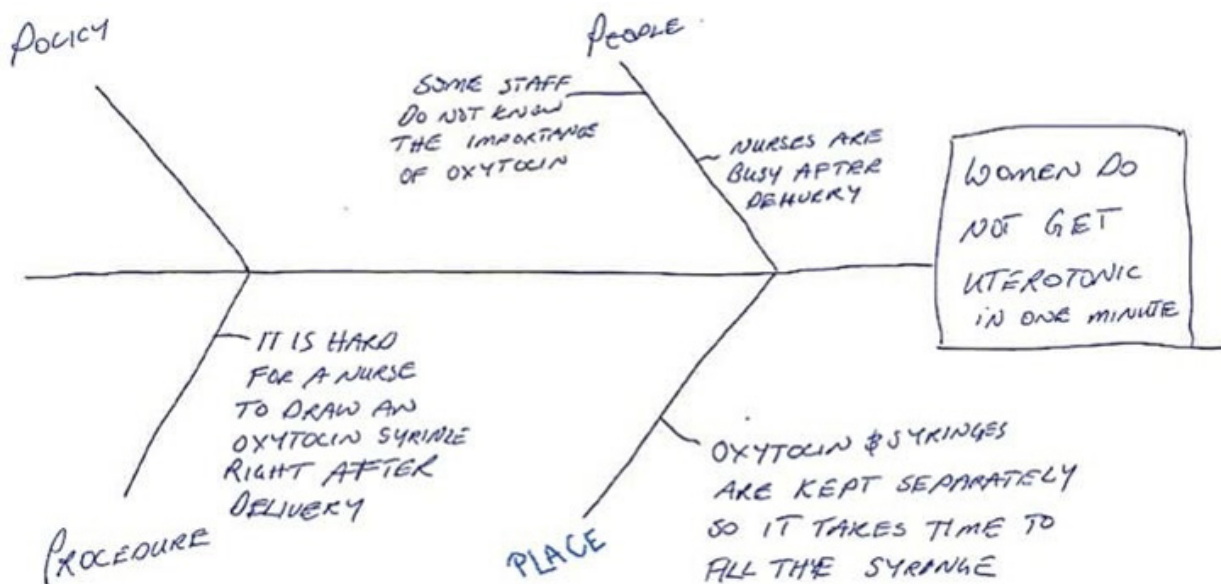 POLICY
PEOPLE
SOME STAFF
DO NOT KNOW
THE IMPORTANCE
OF OXYTOCIN
NURSES ARE
BUSY AFTER
DELIVERY
WOMEN DO
NOT GET
UTEROTONIC
IN ONE MINUTE
IT IS HARD
FOR A NURSE
TO DRAW AN
OXYTOCIN SYRINGE
RIGHT AFTER
DELIVERY
PROCEDURE
PLACE
OXYTOCIN & SYRINGES
ARE KEPT SEPARATELY
SO IT TAKES TIME TO
FILL THE SYRANGE